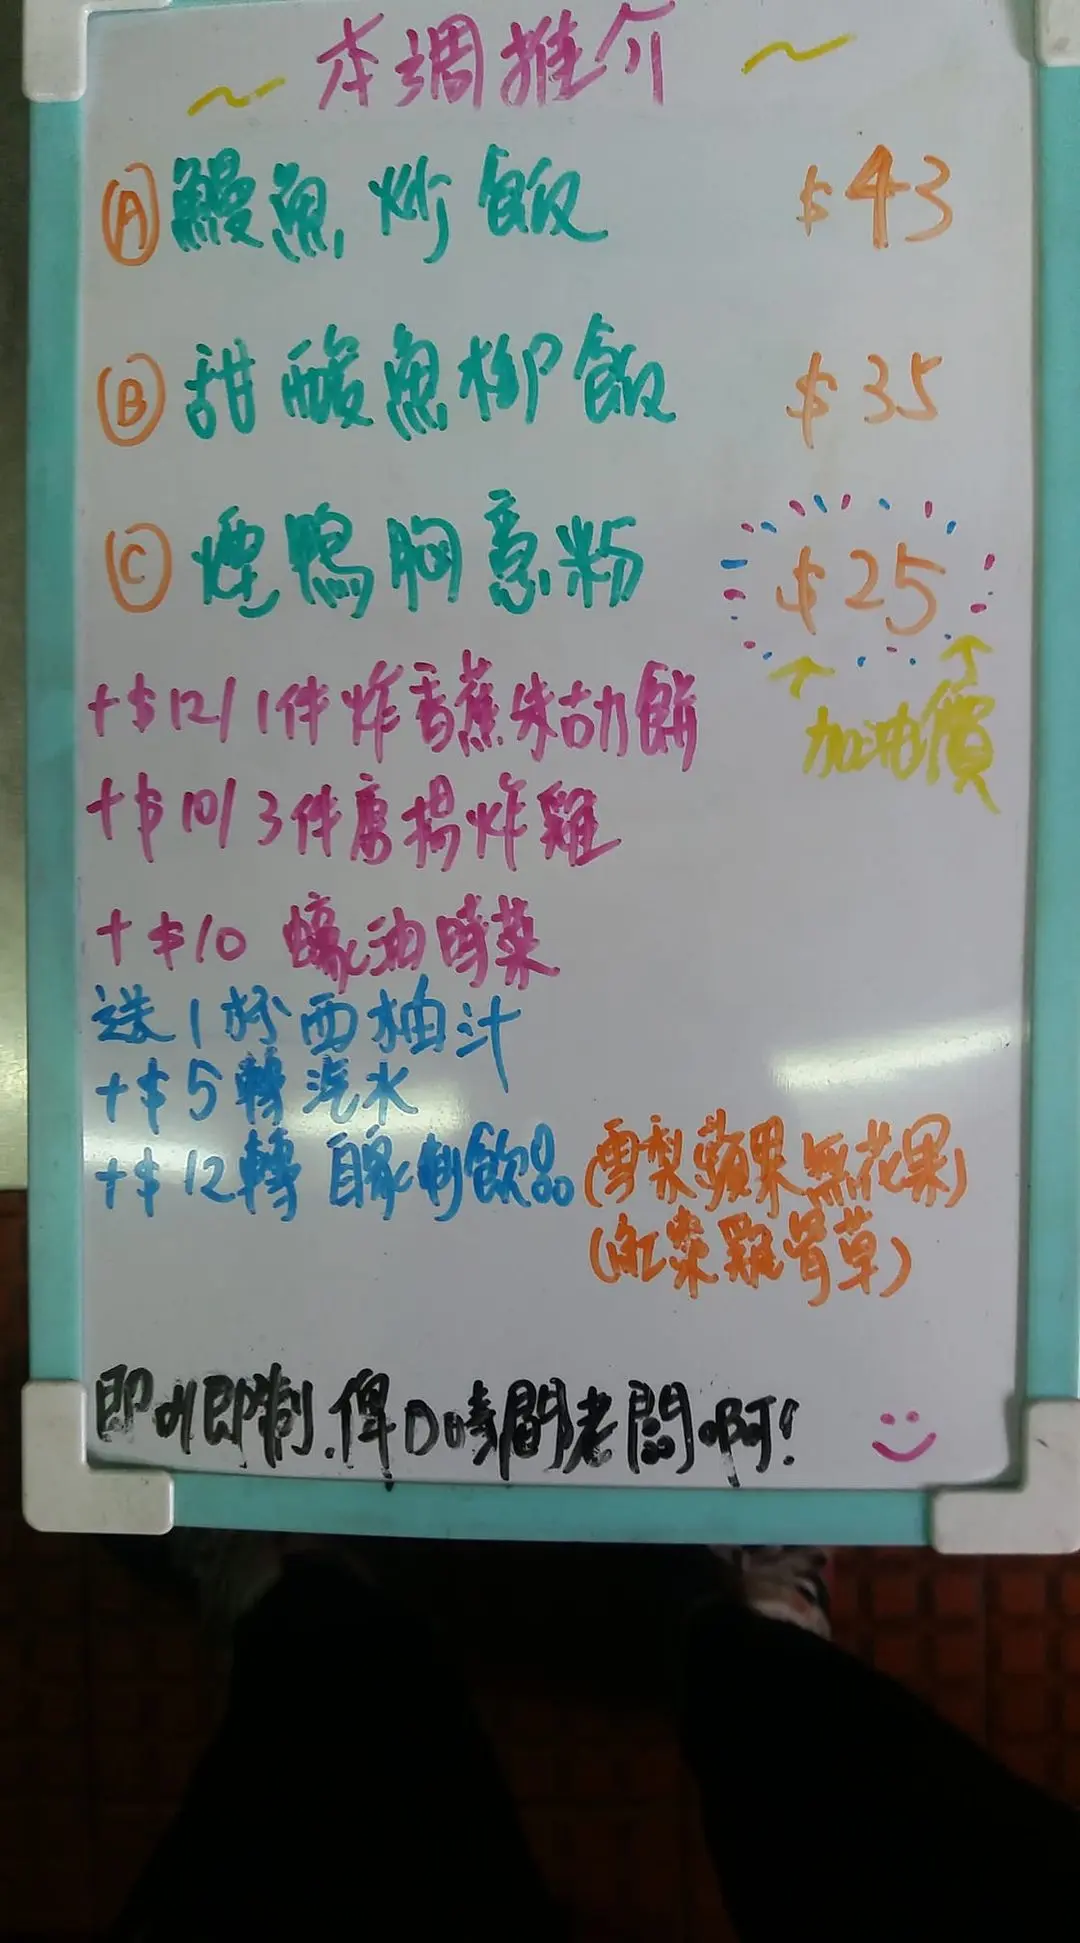 ~ 本調推介 ~
Ⓐ 鰻魚炒飯 $43
Ⓑ 甜酸魚柳飯 $35
Ⓒ 煙鴨胸意粉 $25
加油價
+$12/1件炸香蕉朱古力餅
+$10/3件唐揚炸雞
+$10 蠔油時菜
送1杯西柚汁
+$5轉汽水
+$12轉自家制飲品(雪梨蘋果無花果)
(紅棗雞骨草)
即叫即制.俾D時間老闆啊!